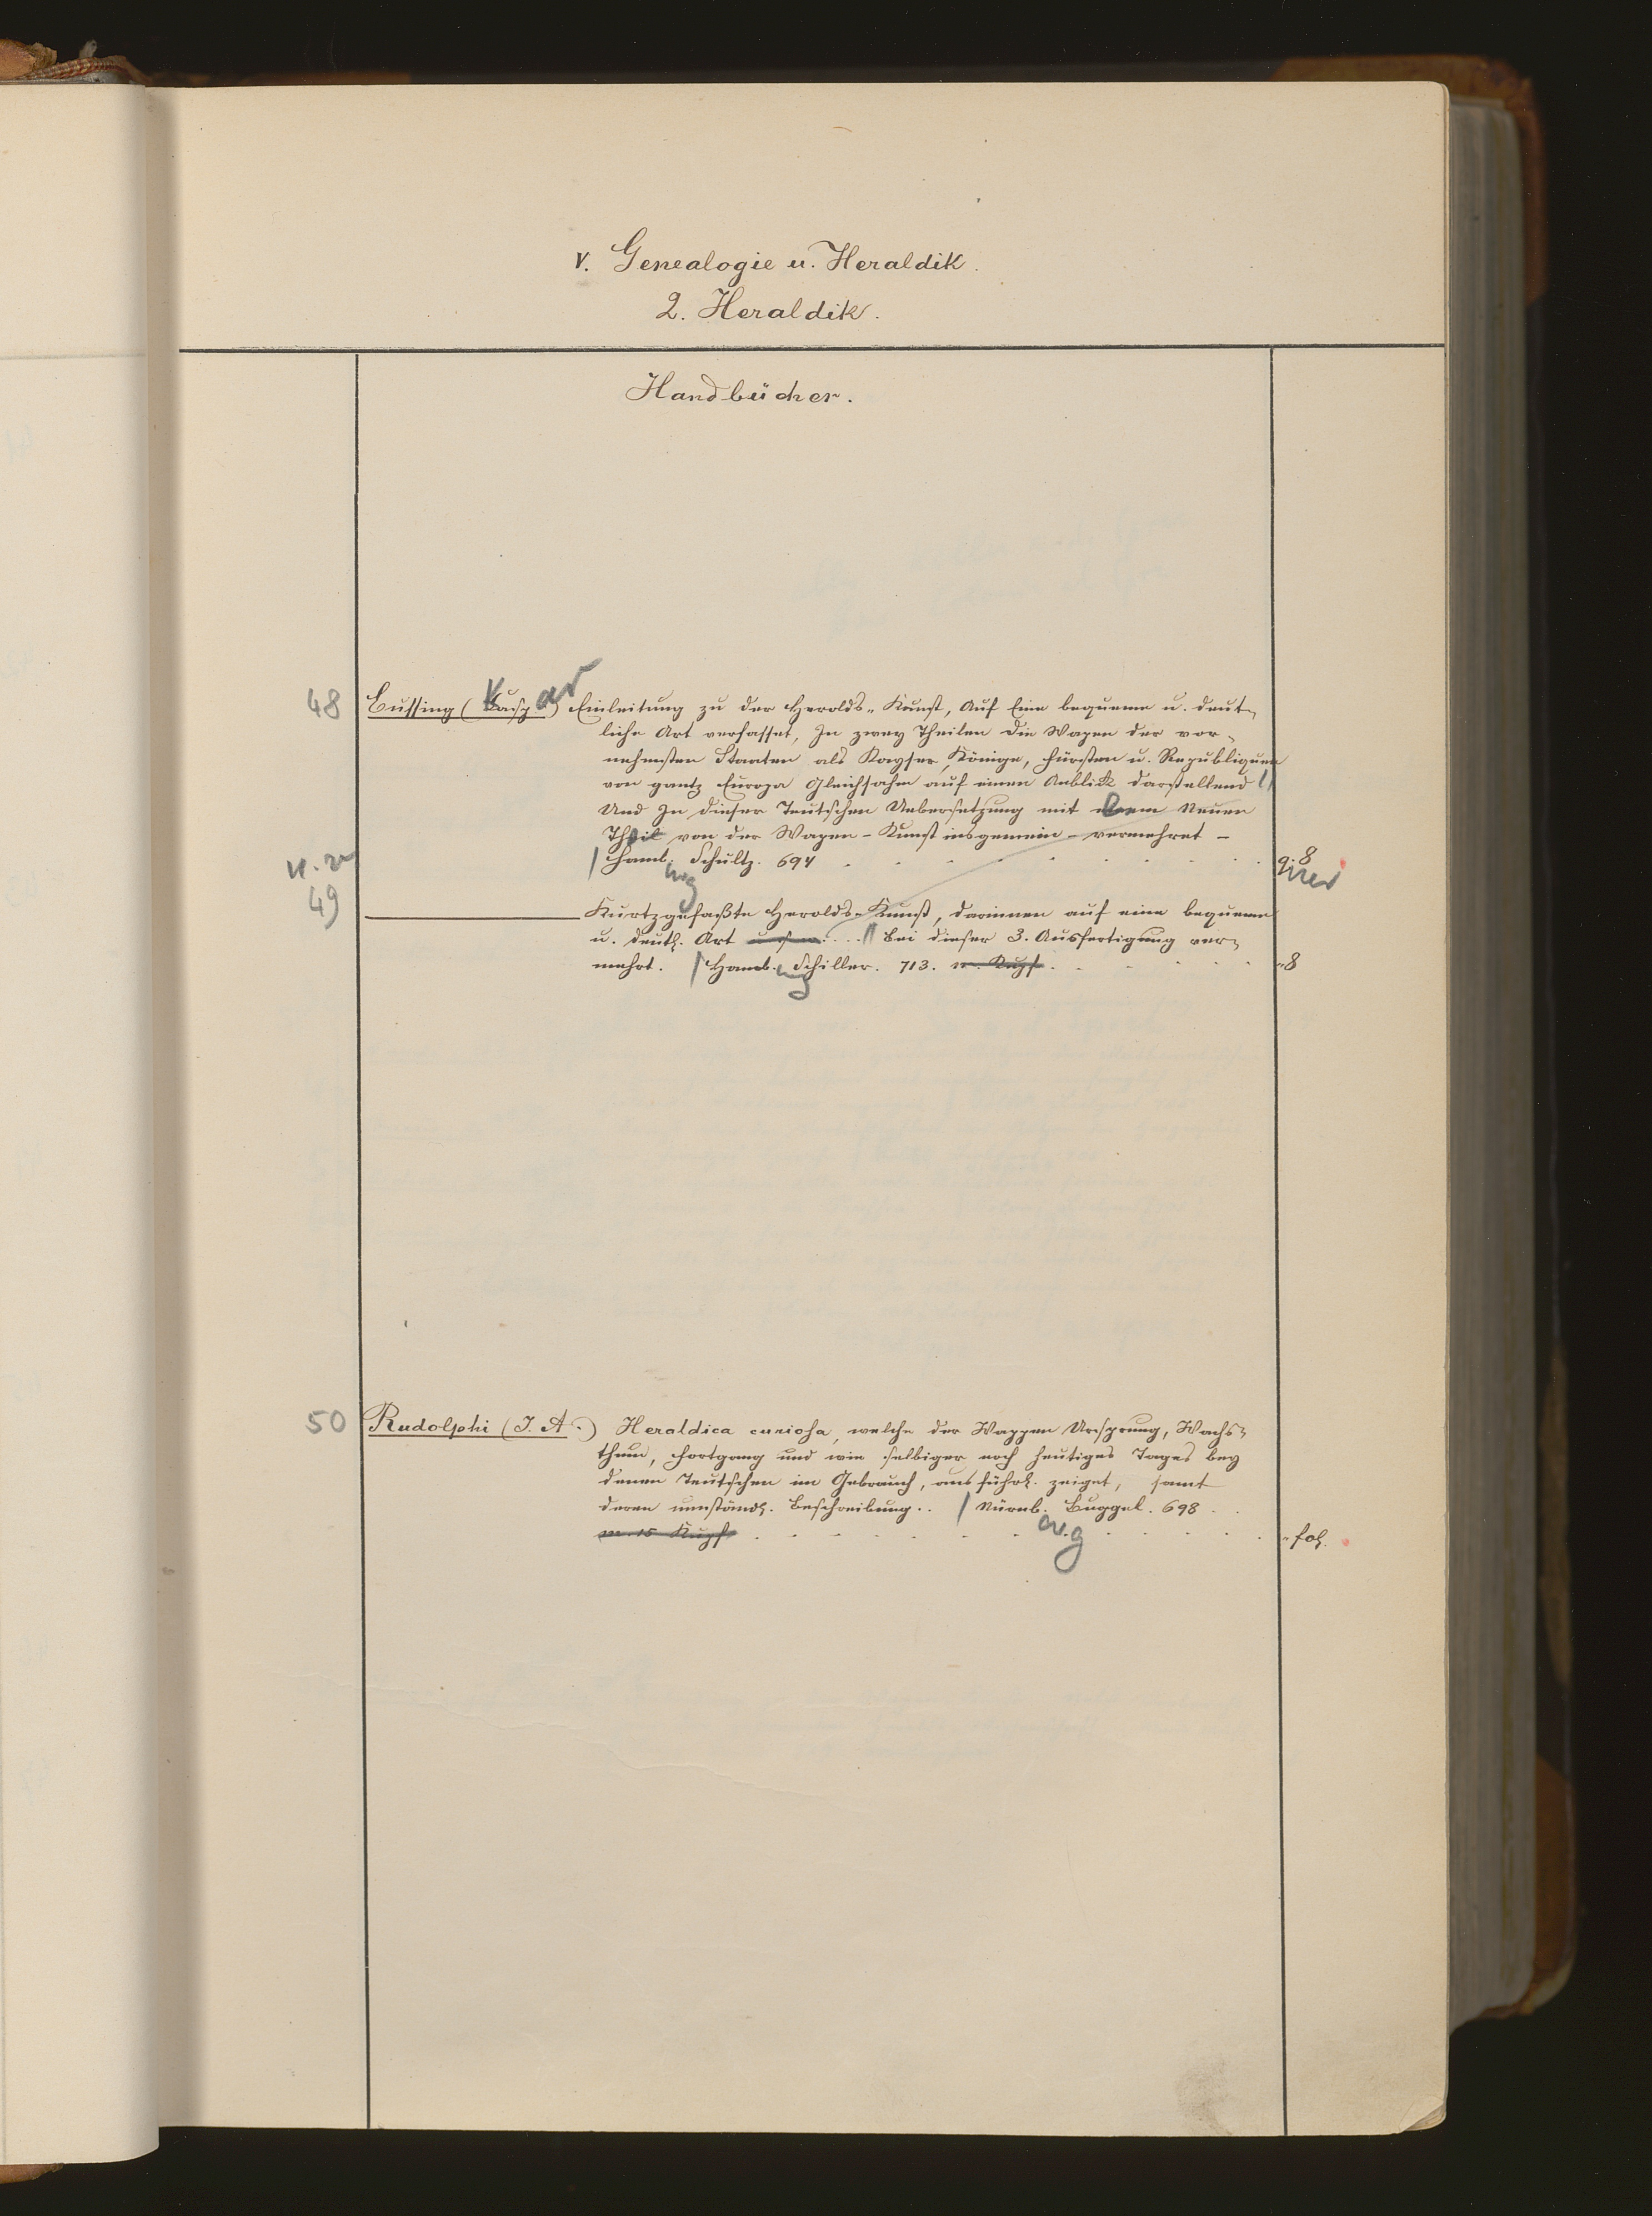 V. Genealogie u. Heraldik.
2. Heraldik.
Handbücher.
48 Bussing (Kaspar) Einleitung zu der Herolds-Kunst, Auf Eine bequeme u. deut-
liche Art verfasset, In zwey Theilen Die Wapen der vor-
nehmsten Staaten als Kayser, Könige, Fürsten u. Republiquen
von gantz Europa Gleichsahm auf einen Anblick darstellend
Und In dieser Teutschen Uebersetzung mit dem Neuen
Theil von der Wapen-Kunst insgemein - vermehret -
Hamb. Schultz. 694 8
49 Kurtzgefaßte Herolds-Kunst, darinnen auf eine bequeme
u. deutl. Art u. s. w. ... Bei dieser 3. Ausfertigung ver-
mehrt. Hamb. Schiller. 713. m. Kupf. 8
50 Rudolphi (J. A.) Heraldica curiosa, welche der Wappen Ursprung, Wachs-
thum, Fortgang und wie selbiger noch heutiges Tages bey
denen Teutschen im Gebrauch, ausführl. zeiget, samt
deren umständl. Beschreibung.. Nürnb. Buggel. 698
m. 15 Kupf. fol.